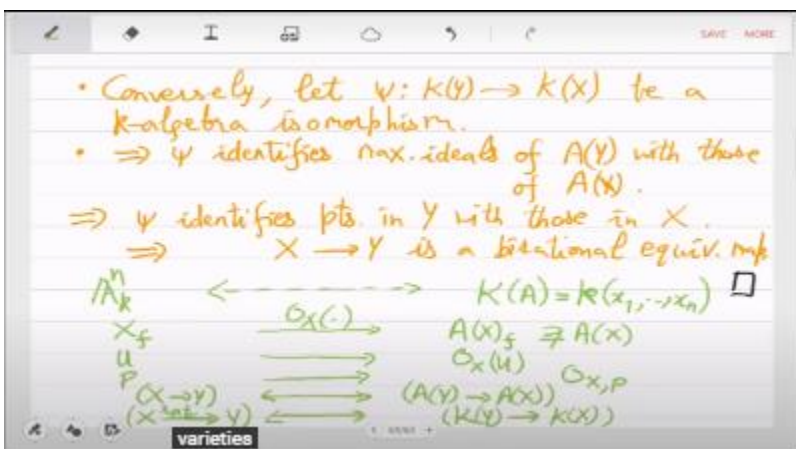 SAVE MORE
• Conversely, let ψ: K(Y) → K(X) be a
k-algebra isomorphism.
• ⇒ ψ identifies max. ideals of A(Y) with those
of A(X).
⇒ ψ identifies pts. in Y with those in X.
⇒ X → Y is a birational equiv. map
𝔸ⁿₖ <- - - -> K(A) = k(x₁, .., xₙ) □
X_f O_X(·) → A(X)_f ⊋ A(X)
U → O_X(U)
P → O_X,P
(X → Y) ↔ (A(Y) → A(X))
(X rat→ Y) ↔ (K(Y) → K(X))
varieties